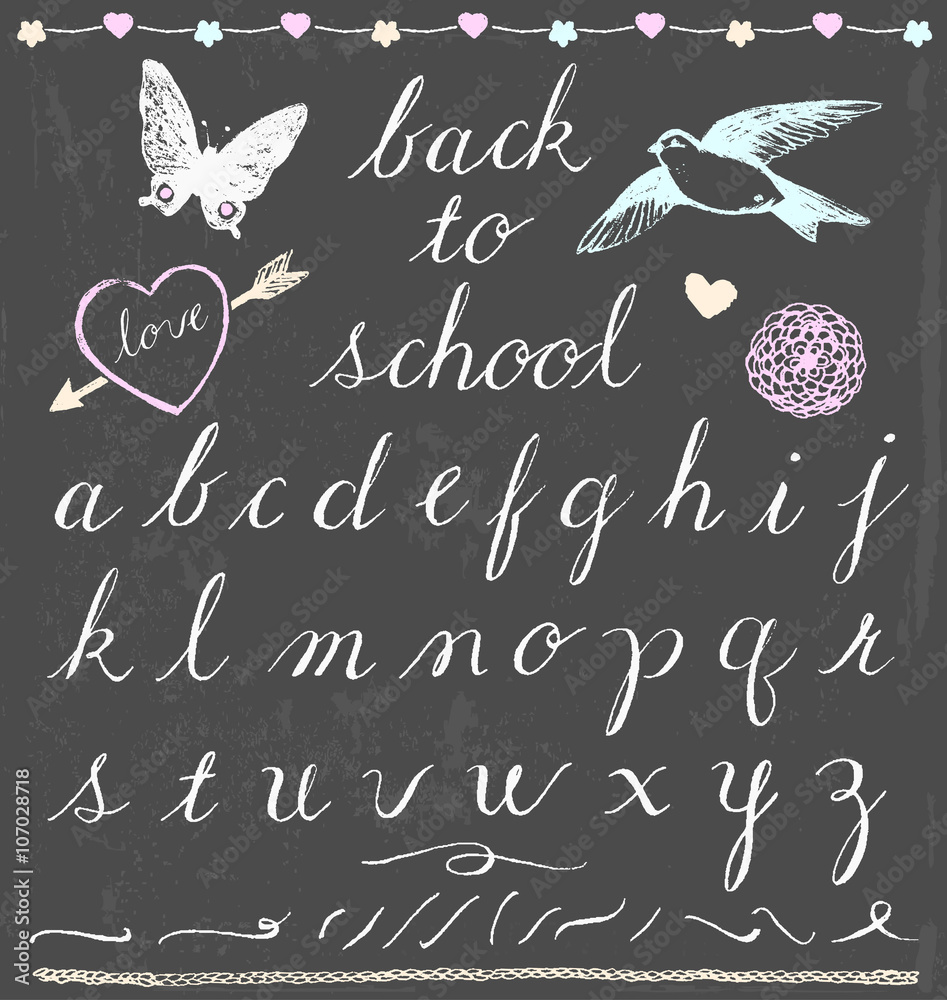 back
to
school
love
a b c d e f g h i j
k l m n o p q r
s t u v w x y z
Adobe Stock | #107028718